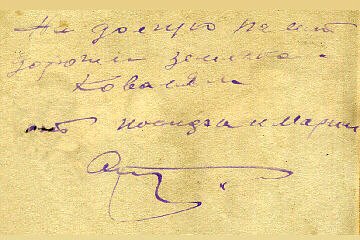 На долгую память
дорогим землякам
Ковалям
от Иосифа и Марии